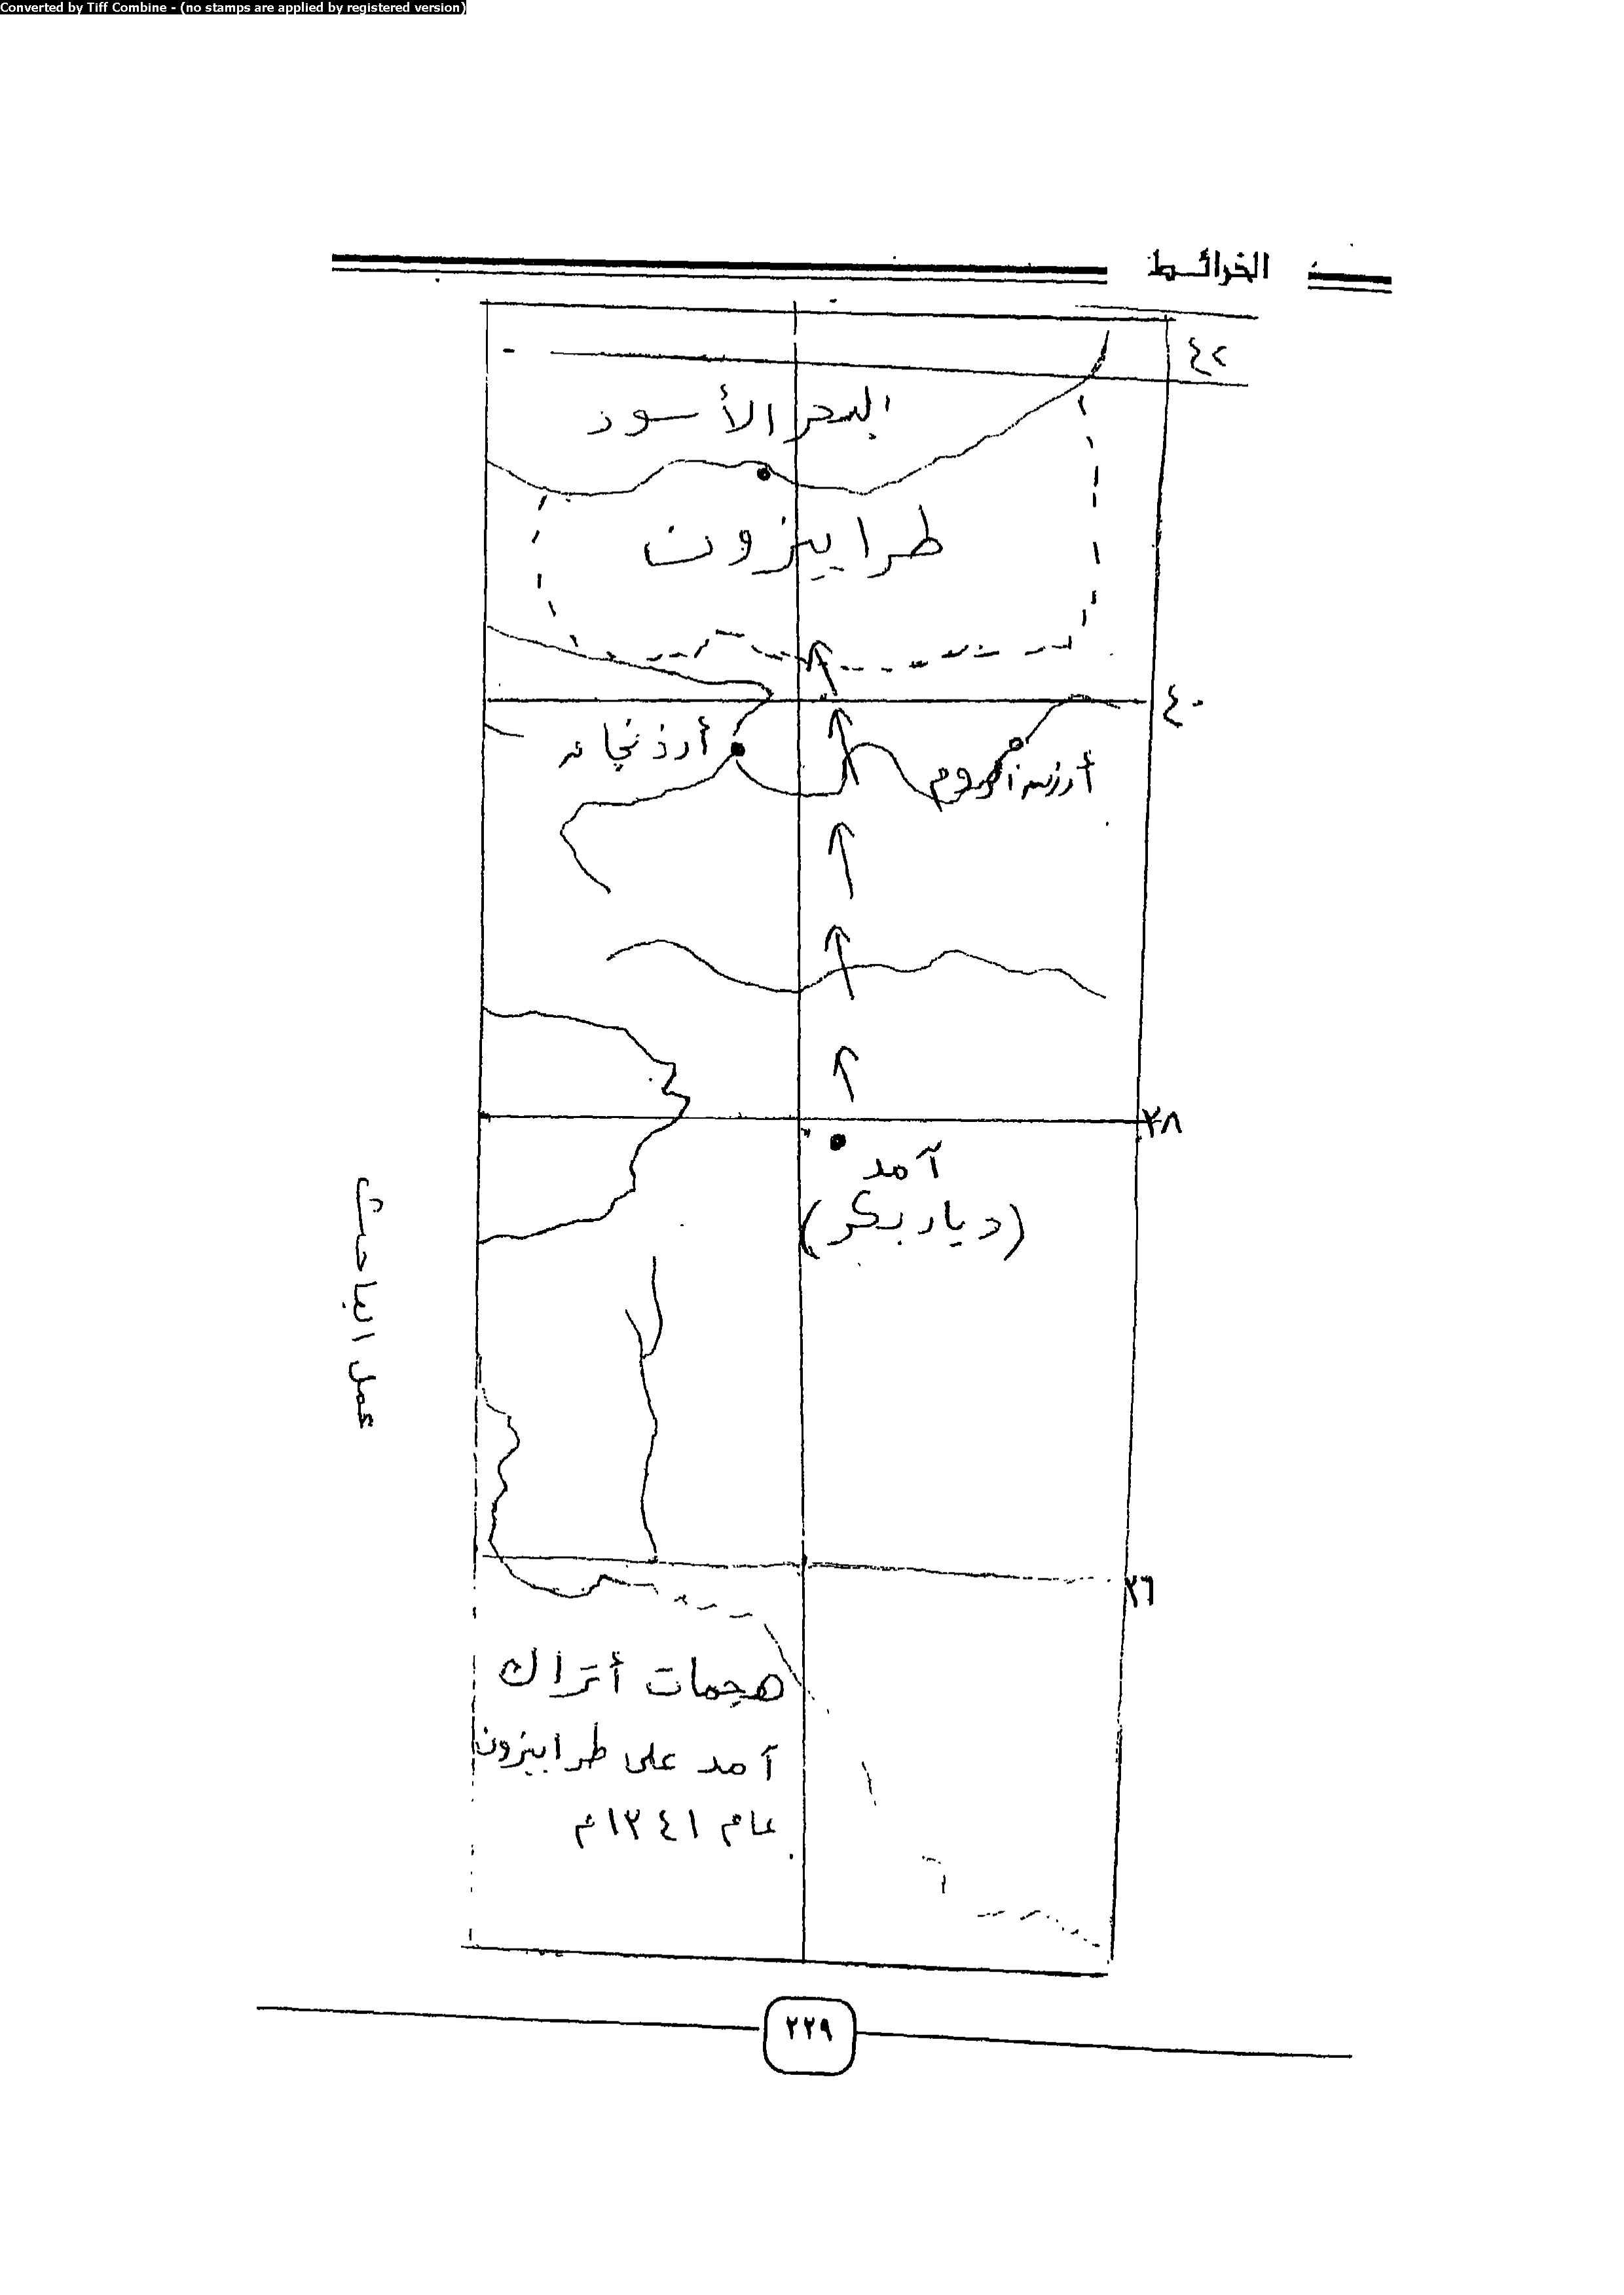 Converted by Tiff Combine - (no stamps are applied by registered version)
الخرائـط
٤٢
البحر الأسود
طرابيزون
٤٠
أرذنجان
أرزن الروم
٣٨
آمد
(ديار بكر)
عمل الباحث
٣٦
هجمات أتراك
آمد على طرابيزون
عام ١٣٤١م
٢٢٩